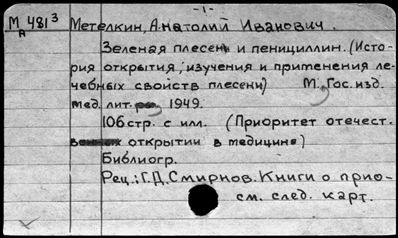 -1-
М 481³ Метелкин, Анатолий Иванович.
А
Зеленая плесень и пенициллин. (Исто-
рия открытия, изучения и применения ле-
чебных свойств плесени) М., Гос. изд.
мед. лит. 1949.
106 стр. с илл. (Приоритет отечест.
открытии в медицине)
Библиогр.
Рец.: Г.Д. Смирнов. Книги о прио-
см. след. карт.